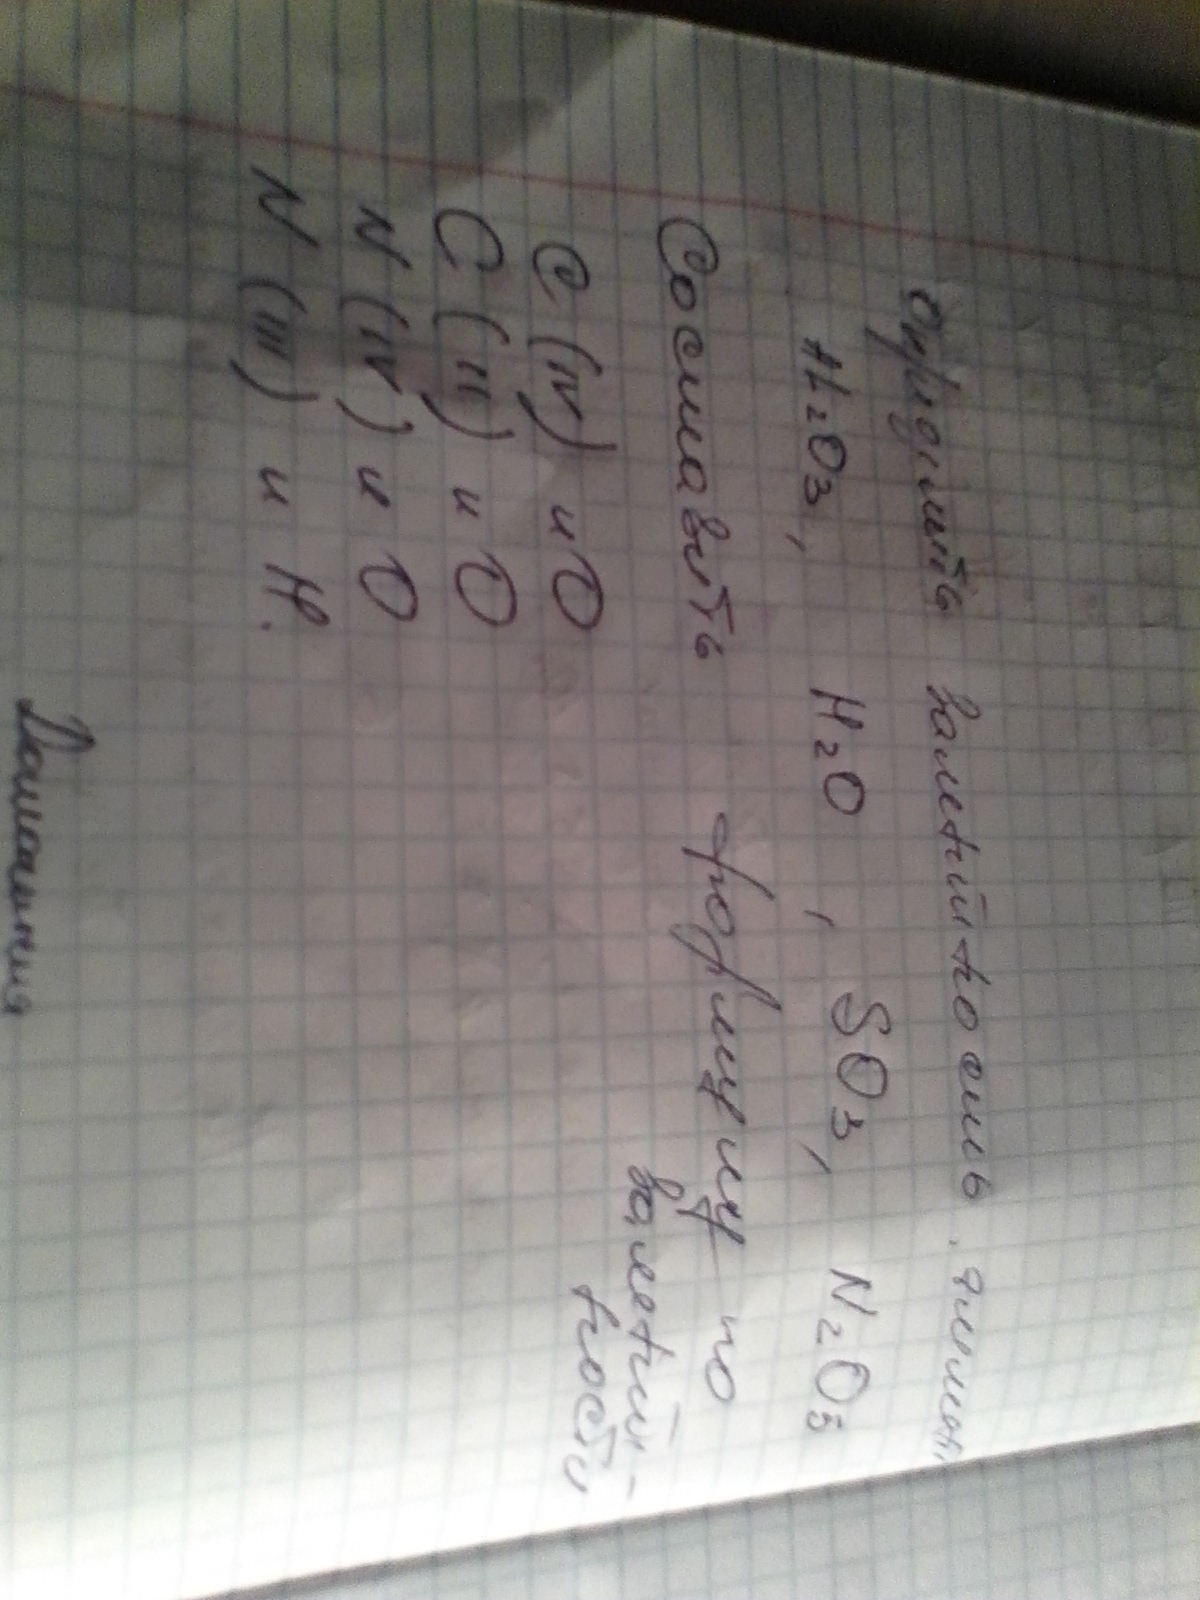 Определить валентность элемент.
Al₂O₃, H₂O, SO₃, N₂O₅
Составить формулу по
валентнос-
ности
C (IV) и O
C (II) и O
N (IV) и O
N (III) и H.
Домашняя